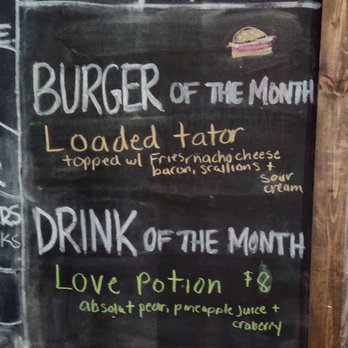 E
BURGER OF THE MONTH
Loaded tator
topped w/ Fries, nacho cheese
bacon, scallions +
sour
cream
RS
KS
DRINK OF THE MONTH
Love Potion $8
absolut pear, pineapple juice +
craberry